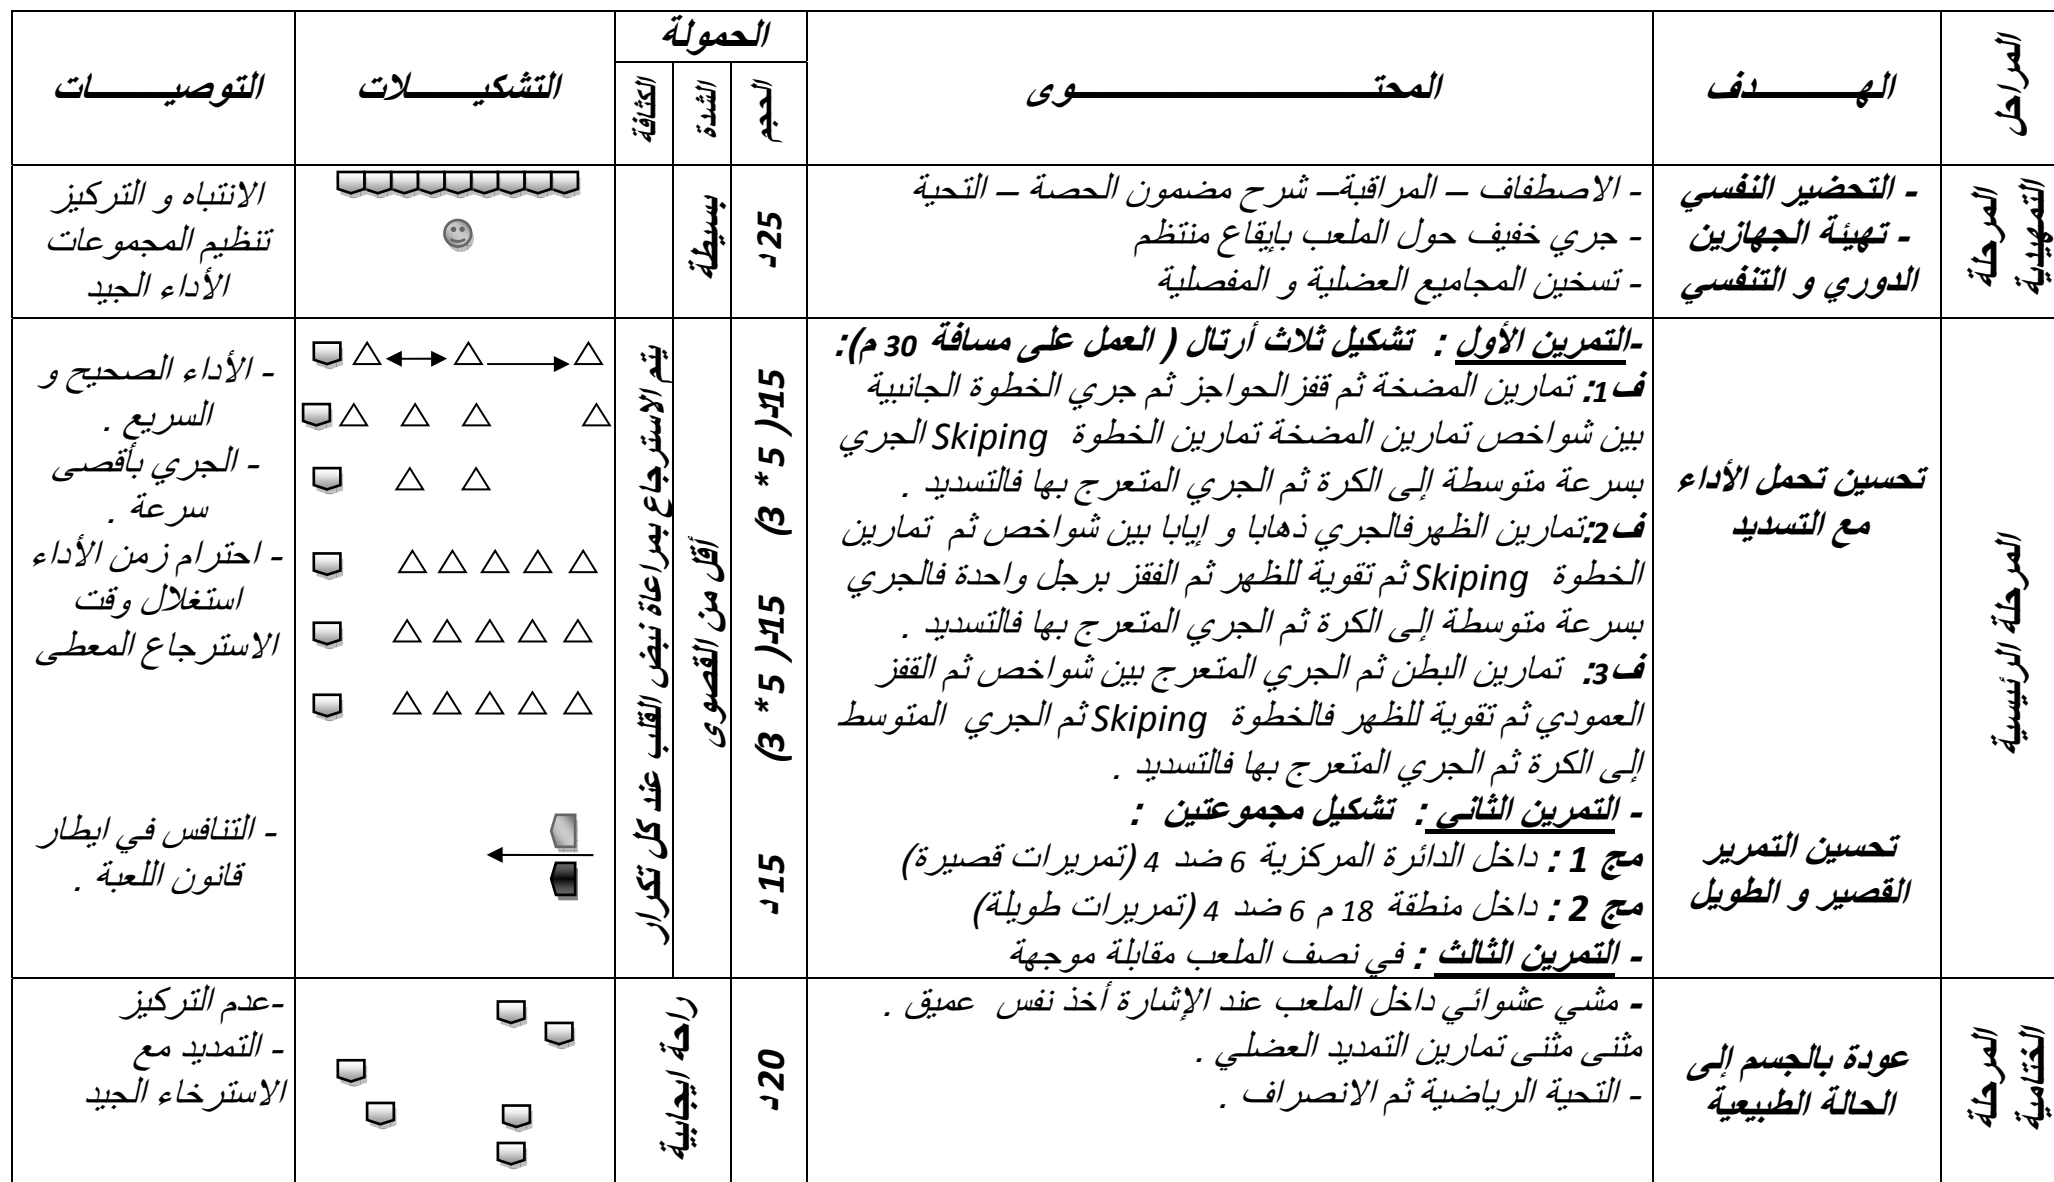 المراحل
الهـــــــدف
المحتـــــــــــــــــــــوى
الحمولة
الحجم
الشدة
الكثافة
التشكيـــــــلات
التوصيـــــــات
المرحلة
التمهيدية
- التحضير النفسي
- تهيئة الجهازين
الدوري و التنفسي
- الاصطفاف – المراقبة– شرح مضمون الحصة – التحية
- جري خفيف حول الملعب بإيقاع منتظم
- تسخين المجاميع العضلية و المفصلية
25 د
بسيطة
الانتباه و التركيز
تنظيم المجموعات
الأداء الجيد
المرحلة الرئيسية
تحسين تحمل الأداء
مع التسديد
تحسين التمرير
القصير و الطويل
-التمرين الأول : تشكيل ثلاث أرتال ( العمل على مسافة 30 م):
ف1: تمارين المضخة ثم قفزالحواجز ثم جري الخطوة الجانبية
بين شواخص تمارين المضخة تمارين الخطوة Skiping الجري
بسرعة متوسطة إلى الكرة ثم الجري المتعرج بها فالتسديد .
ف2:تمارين الظهرفالجري ذهابا و إيابا بين شواخص ثم تمارين
الخطوة Skiping ثم تقوية للظهر ثم الفقز برجل واحدة فالجري
بسرعة متوسطة إلى الكرة ثم الجري المتعرج بها فالتسديد .
ف3: تمارين البطن ثم الجري المتعرج بين شواخص ثم القفز
العمودي ثم تقوية للظهر فالخطوة Skiping ثم الجري المتوسط
إلى الكرة ثم الجري المتعرج بها فالتسديد .
- التمرين الثاني : تشكيل مجموعتين :
مج 1 : داخل الدائرة المركزية 6 ضد 4 (تمريرات قصيرة)
مج 2 : داخل منطقة 18 م 6 ضد 4 (تمريرات طويلة)
- التمرين الثالث : في نصف الملعب مقابلة موجهة
15د( 5 * 3)
15د( 5 * 3)
15 د
أقل من القصوى
يتم الاسترجاع بمراعاة نبض القلب عند كل تكرار
- الأداء الصحيح و
السريع .
- الجري بأقصى
سرعة .
- احترام زمن الأداء
استغلال وقت
الاسترجاع المعطى
- التنافس في ايطار
قانون اللعبة .
المرحلة
الختامية
عودة بالجسم إلى
الحالة الطبيعية
- مشي عشوائي داخل الملعب عند الإشارة أخذ نفس عميق .
مثنى مثنى تمارين التمديد العضلي .
- التحية الرياضية ثم الانصراف .
20 د
راحة ايجابية
-عدم التركيز
- التمديد مع
الاسترخاء الجيد